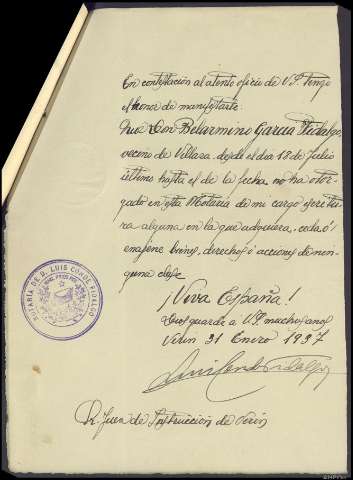 En contestación al atento oficio de V.S. tengo
el honor de manifestarle:
Que Don Belarmino García Hidalgo,
vecino de Villaza, desde el día 18 de Julio
último hasta el de la fecha, no ha otor-
gado en esta Notaría de mi cargo escritu-
ra alguna en la que adquiera, ceda ó
enagene bienes, derechos ó acciones de nin-
guna clase
¡Viva España!
Dios guarde a V.S. muchos anos
Verín 31 Enero 1937
Luis Conde Fidalgo
NOTARÍA DE D. LUIS CONDE FIDALGO
Sr. Juez de Instrucción de Verín